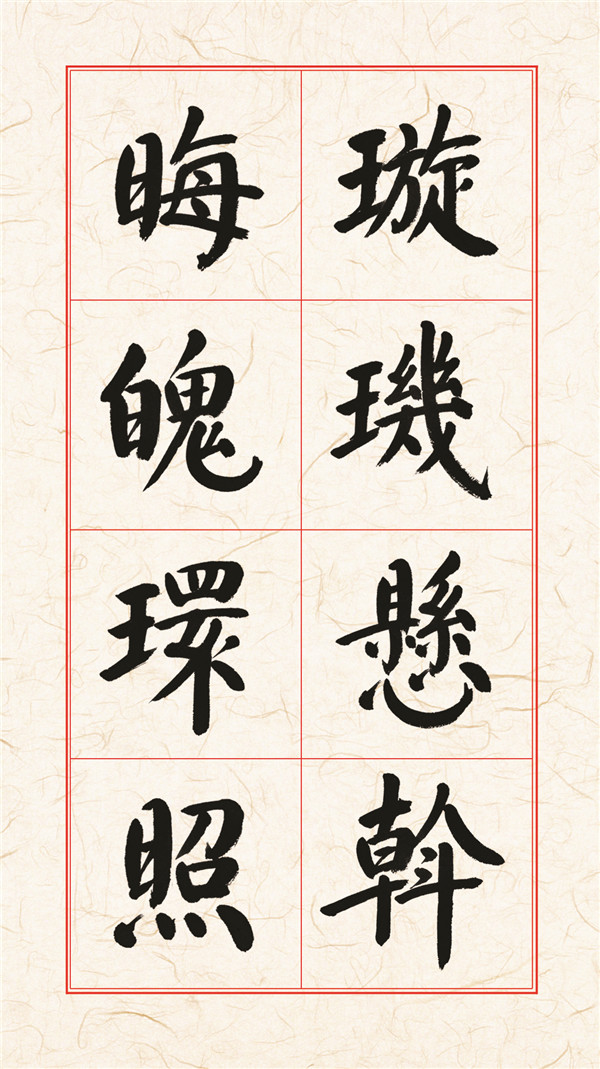 璇璣懸斡
晦魄環照